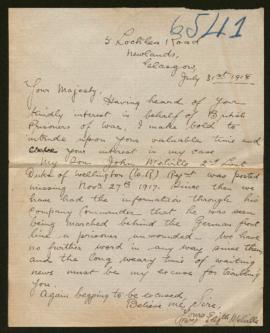 6541
5 Lochlea Road
Newlands,
Glasgow,
July 31st 1918
Your Majesty,
Having heard of your
kindly interest in behalf of British
Prisoners of war, I make bold to
intrude upon your valuable time and
your interest in my case
My Son John Melville 2nd Lieut
Duke of Wellington (W.R) Regt was posted
missing Novr 27th 1917. Since then we
have had the information through his
Company Commander that he was seen
being marched behind the German front
line a prisoner unwounded. We have
no further word in any way since then
and the long weary time of waiting
news must be my excuse for troubling
you.
Again begging to be excused,
Believe me, Sire,
Yours
(Mrs) Edith Melville